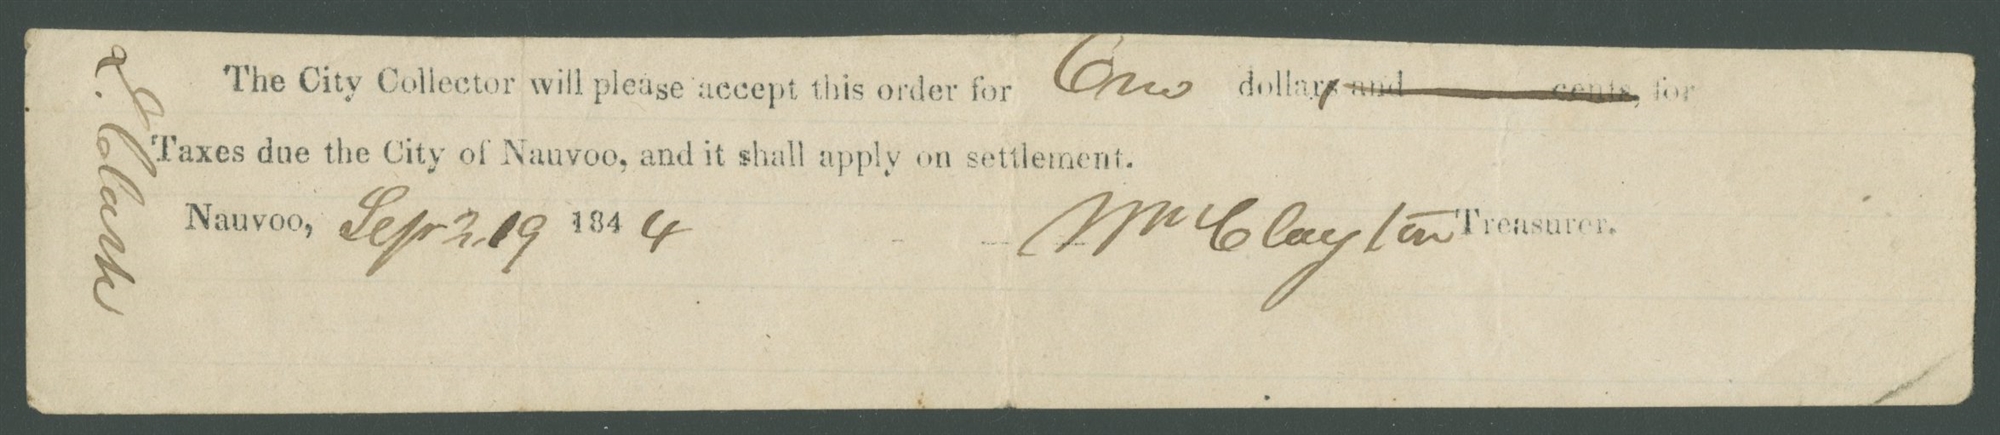 The City Collector will please accept this order for One dollars and cents, for
Taxes due the City of Nauvoo, and it shall apply on settlement.
Nauvoo, Sept 19 1844 Wm Clayton Treasurer.
Clark